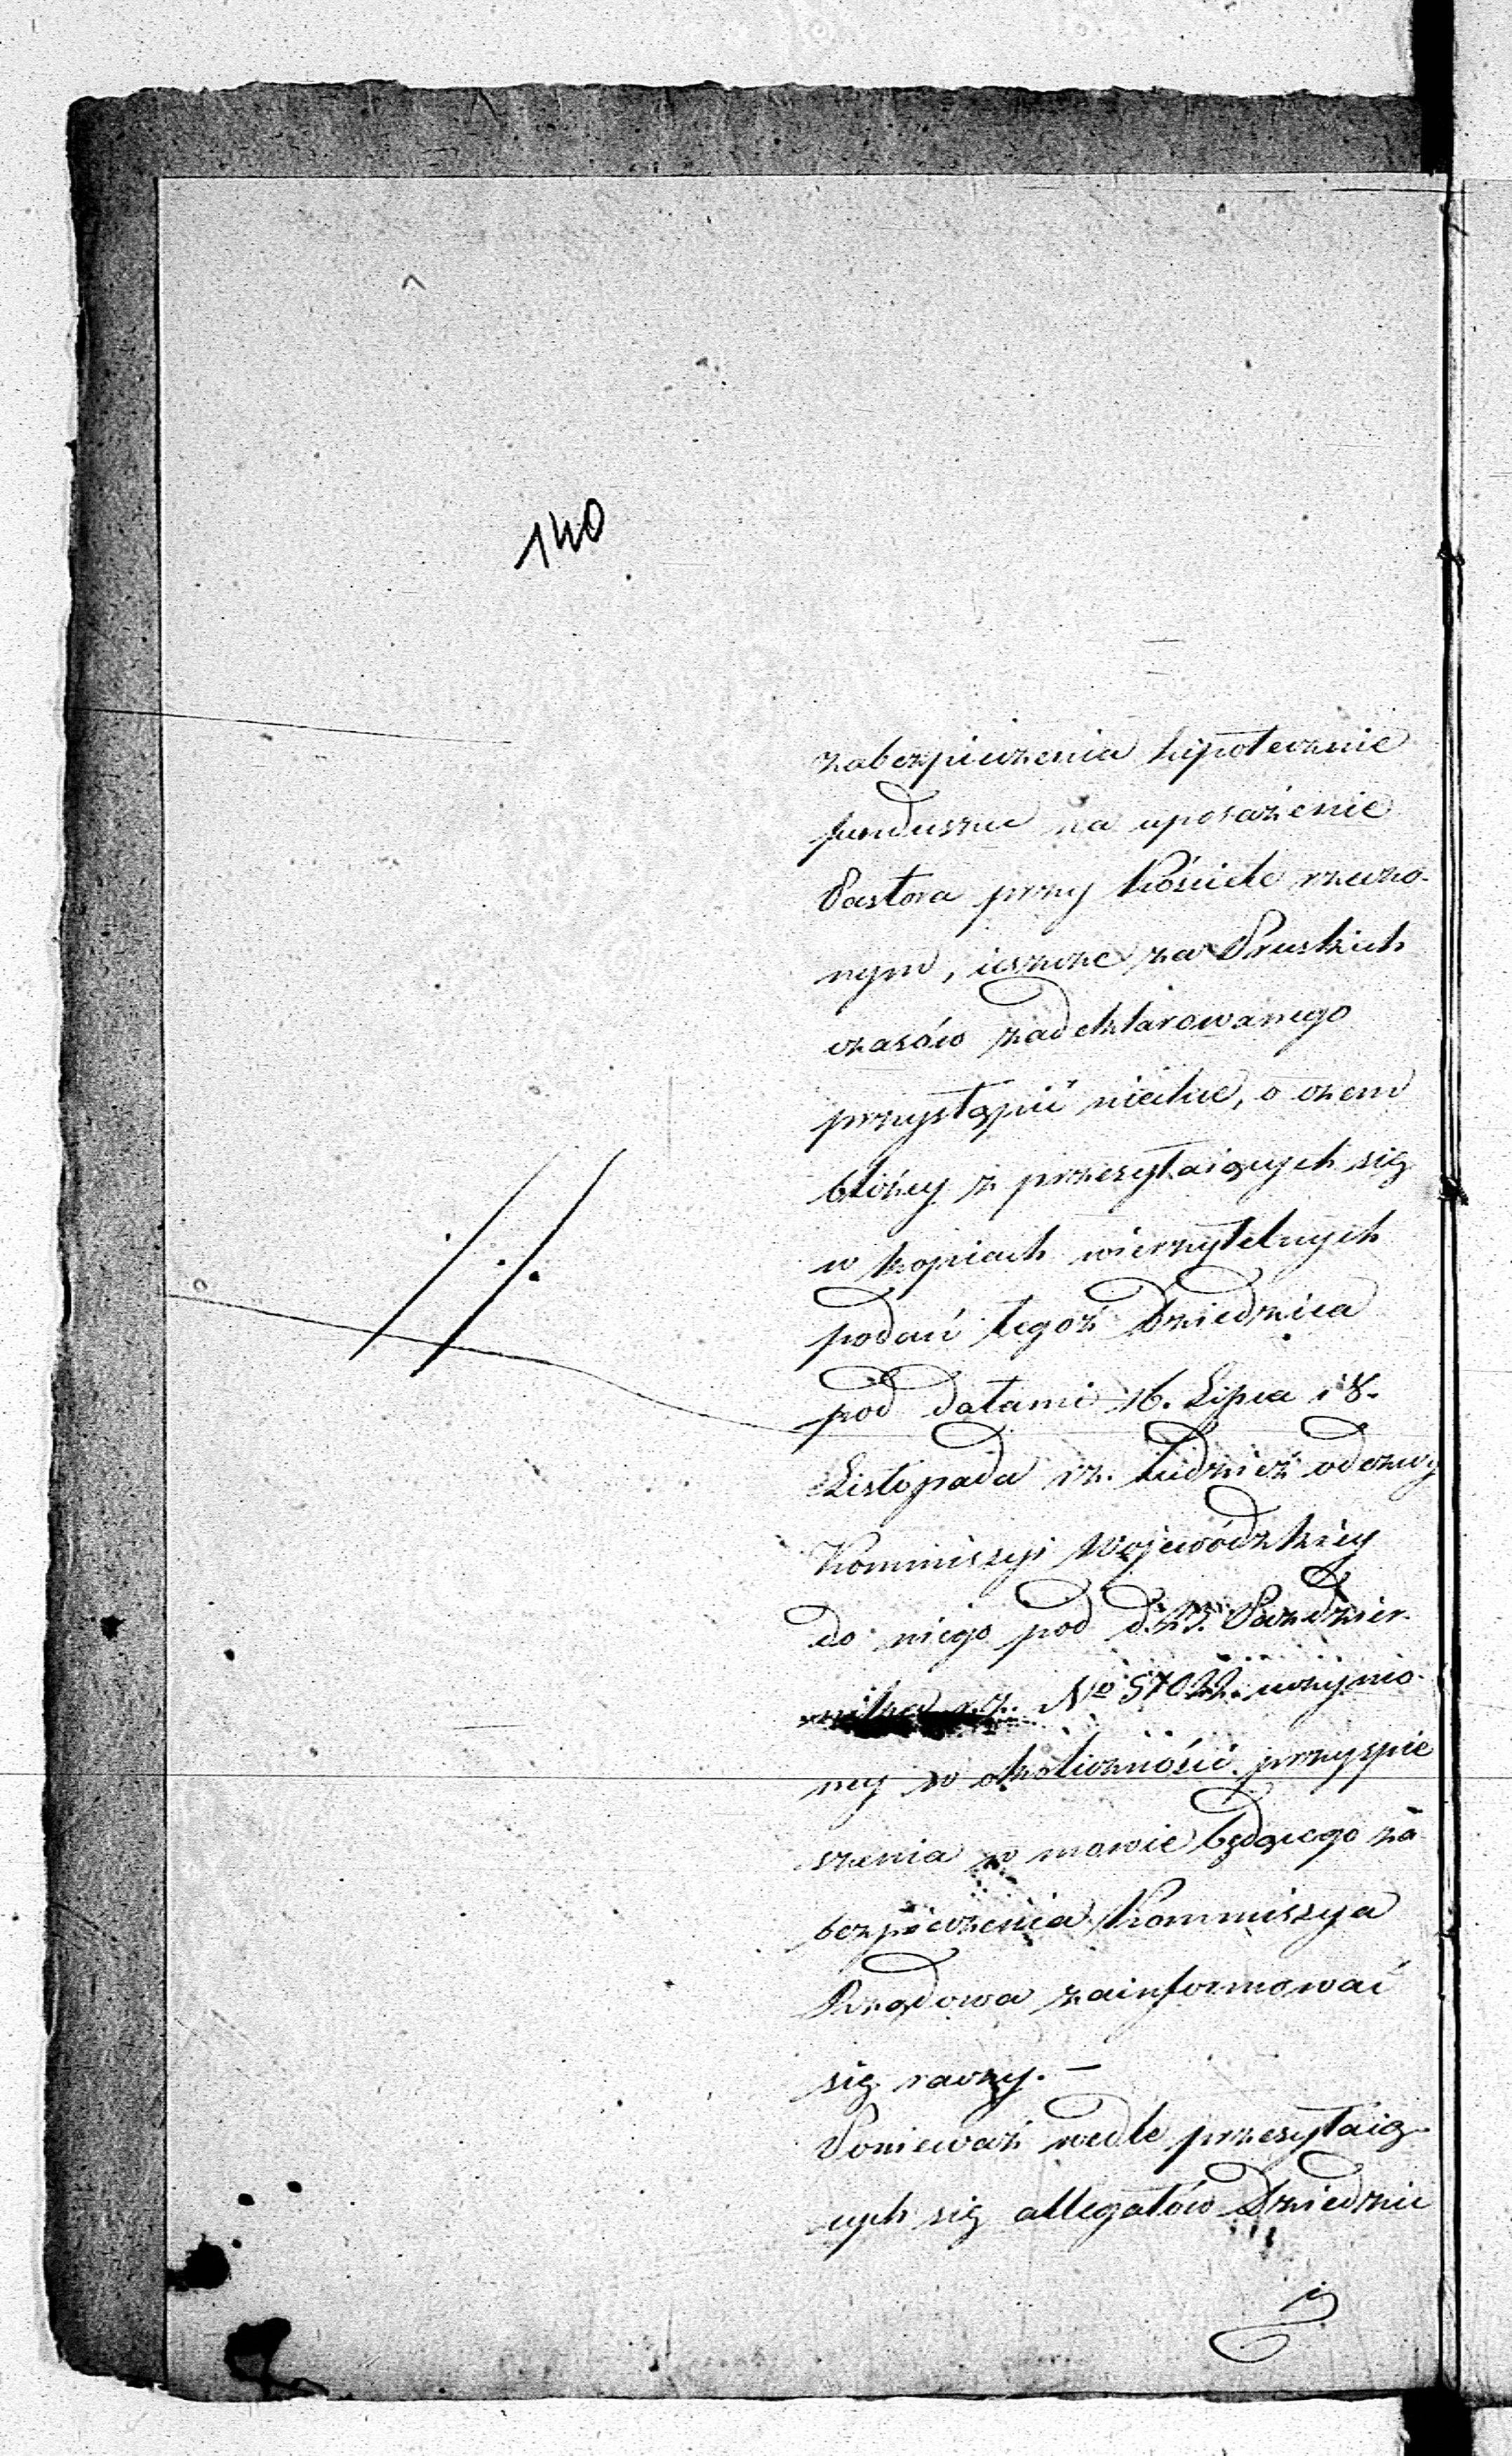 140
zabezpieczenia hipotecznie
funduszu na uposażenie
Pastora przy kościele rzeczo-
nym, ieszcze za Pruskich
czasów zadeklarowanego
przystąpić niechce, o czem
bliżey z przesyłaiących się
w kopiach wierzytelnych
podań tegoż Dziedzica
pod datami 16. Lipca i 8.
Listopada rz. tudzież odezwy
Kommissyi Woјewódzkiey
do niego pod d. 23. Paździer-
nika r. z. No 57022. uczynio-
ney w okoliczności przyspie
szenia w mowie będącego za
bezpieczenia Kommissya
Rządowa zainformować
się raczy. –
Ponieważ wedle przesyłaią-
cych się allegatów Dziedzic